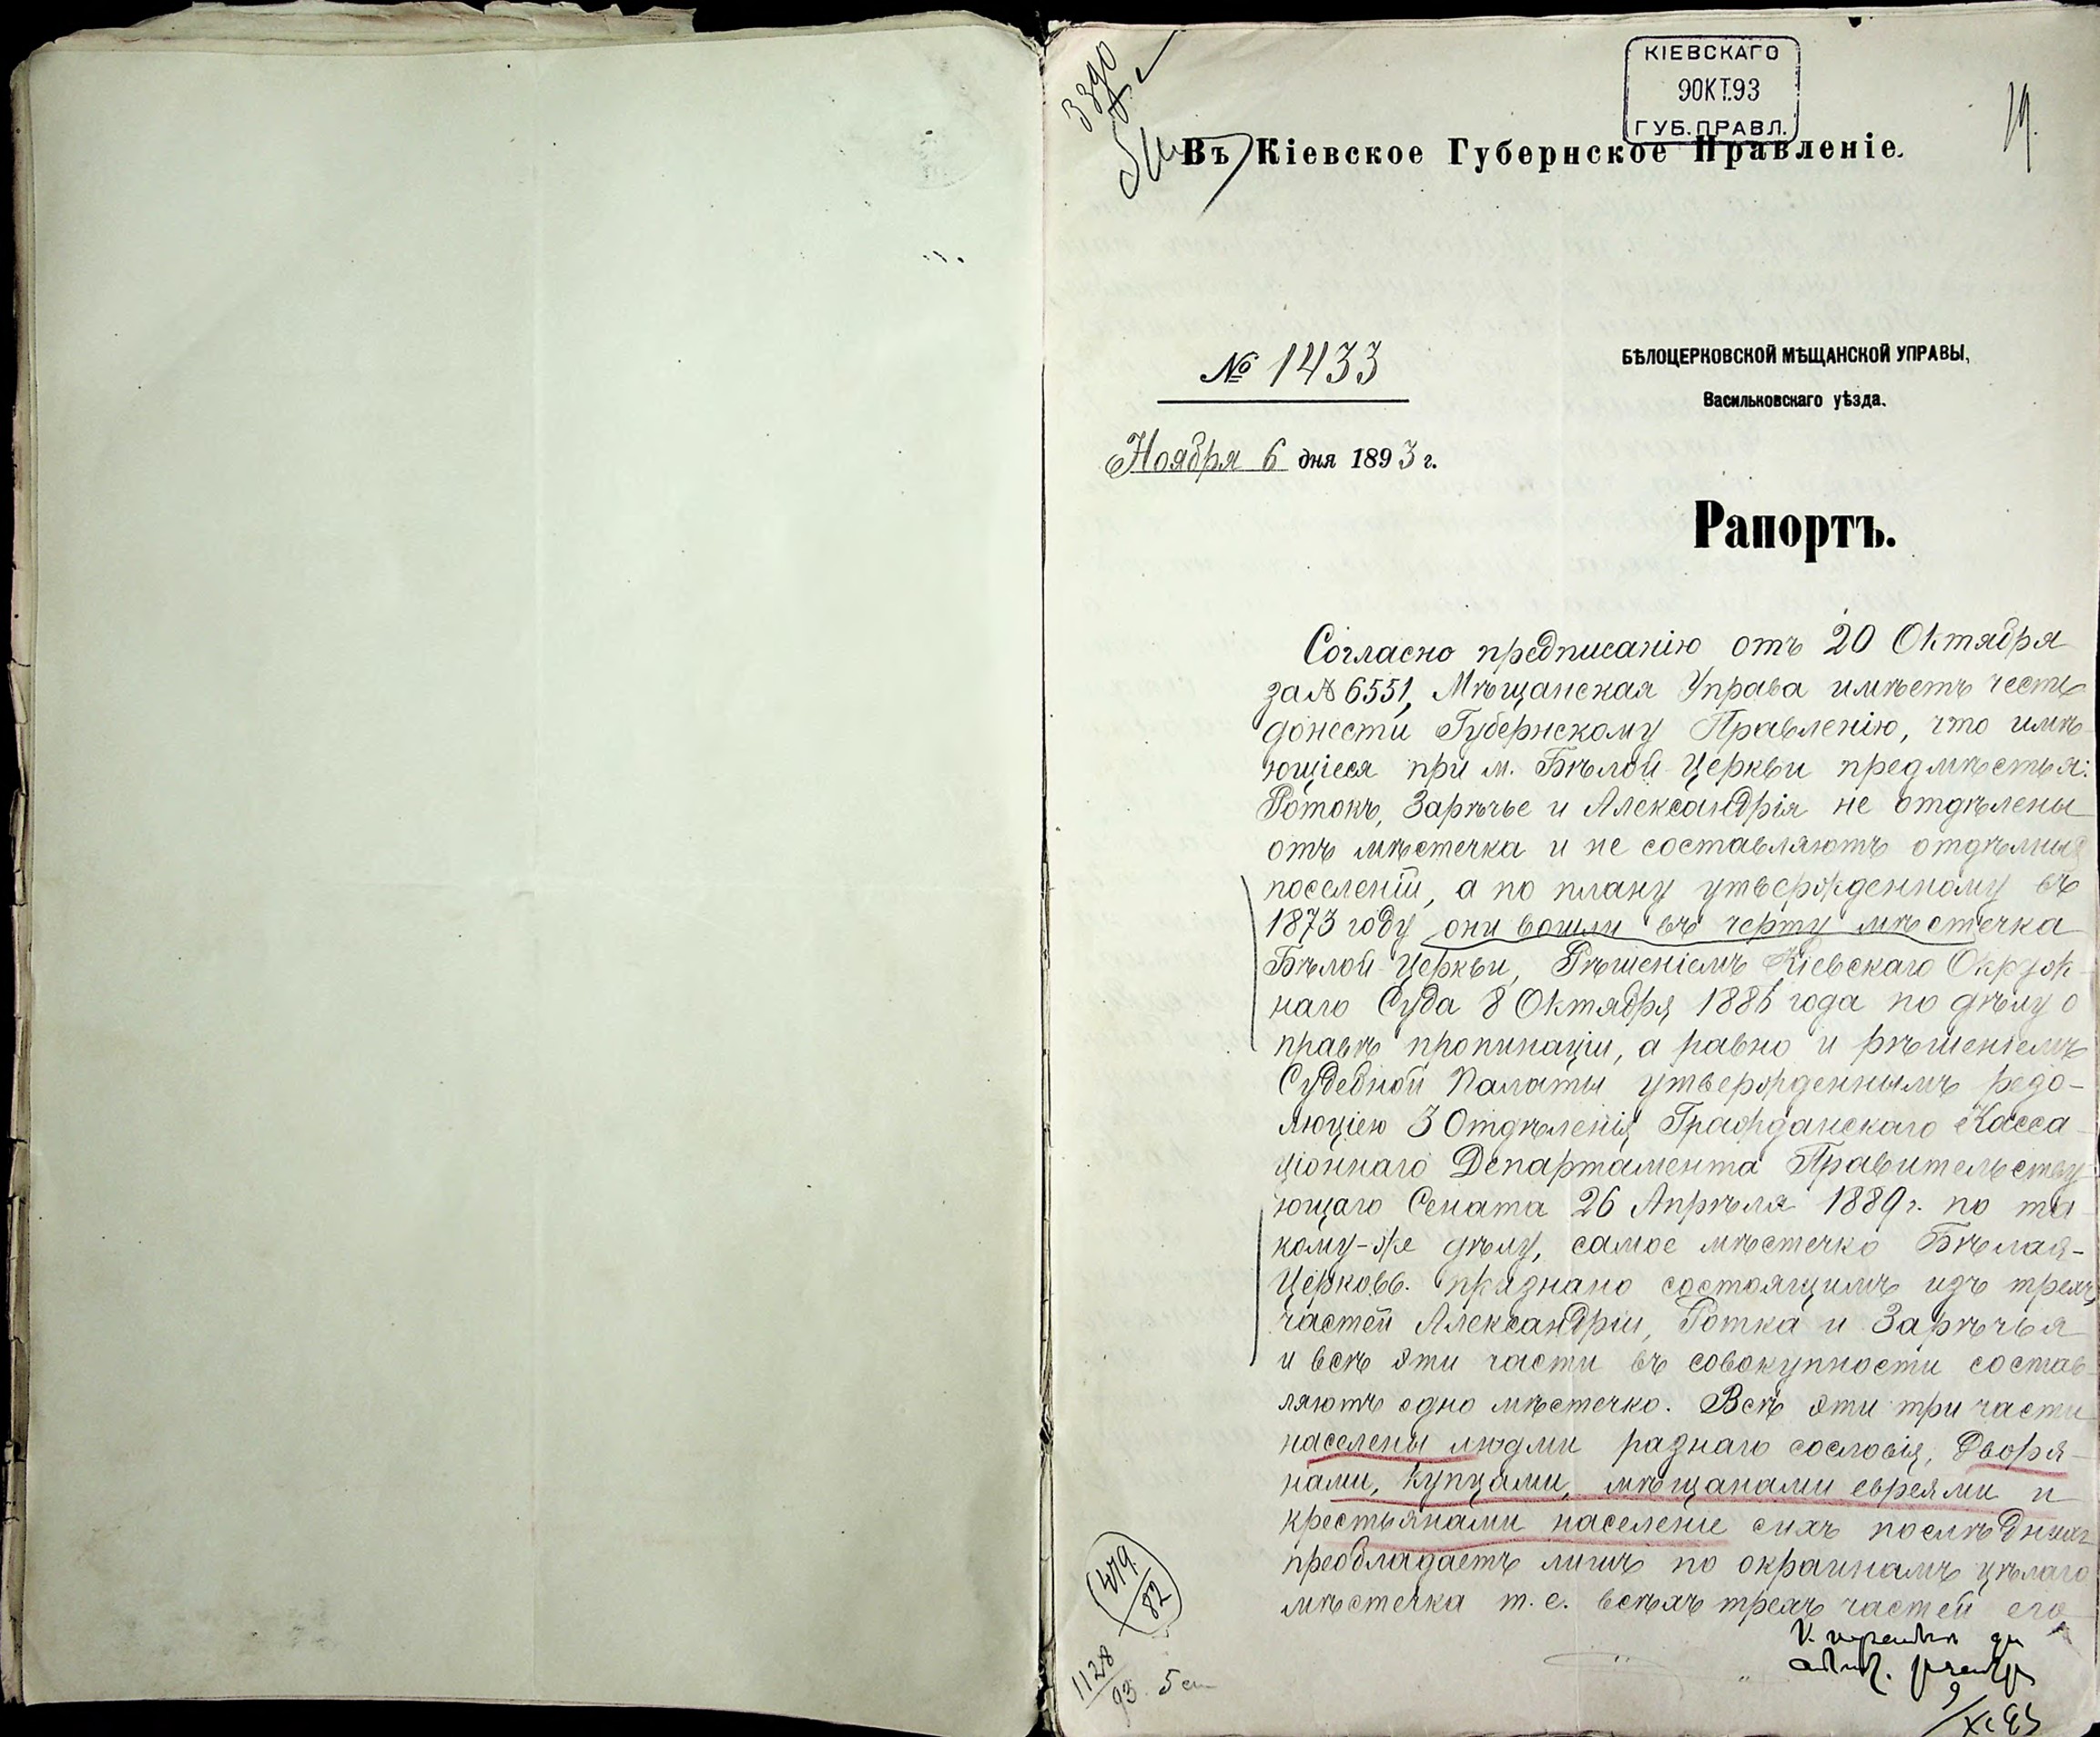 КІЕВСКАГО
9 ОКТ.93
ГУБ.ПРАВЛ.
19.
Въ Кіевское Губернское Правленіе.
№ 1433
БѢЛОЦЕРКОВСКОЙ МѢЩАНСКОЙ УПРАВЫ,
Васильковскаго уѣзда.
Ноября 6 дня 1893 г.
Рапортъ.
Согласно предписанію отъ 20 Октября
за № 6551, Мѣщанская Управа имѣетъ честь
донести Губернскому Правленію, что имѣ-
ющіеся при м. Бѣлой-Церкви предмѣстья:
Ротокъ, Зарѣчье и Александрія не отдѣлены
отъ мѣстечка и не составляютъ отдѣльныя
поселеній, а по плану утвержденному въ
1873 году они вошли въ черту мѣстечка
Бѣлой-Церкви, Рѣшеніемъ Кіевскаго Окруж-
наго Суда 8 Октября 1886 года по дѣлу о
правѣ пропинаціи, а равно и рѣшеніемъ
Судебной Палаты утвержденнымъ резо-
люціею 3 Отдѣленія Гражданскаго Касса-
ціоннаго Департамента Правительству-
ющаго Сената 26 Апрѣля 1889 г. по та-
кому-же дѣлу, самое мѣстечко Бѣлая-
Церковь признано состоящимъ изъ трехъ
частей Александріи, Ротка и Зарѣчья
и всѣ эти части въ совокупности состав-
ляютъ одно мѣстечко. Всѣ эти три части
населены людми разнаго сословія, Дворя-
нами, Купцами, мѣщанами евреями и
крестьянами населеніе сихъ послѣднихъ
преобладаетъ лишь по окраинамъ цѣлаго
мѣстечка т. е. всѣхъ трехъ частей его
419/82
1128/93 5
9/XI 93